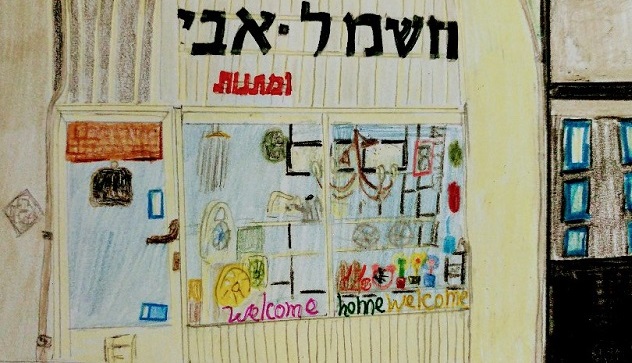 חשמל·אבי
ומתנות
welcome home welcome